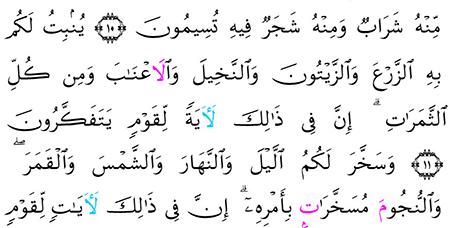 مِّنْهُ شَرَابٌ وَمِنْهُ شَجَرٌ فِيهِ تُسِيمُونَ ۝١٠ يُنۢبِتُ لَكُم
بِهِ الزَّرْعَ وَالزَّيْتُونَ وَالنَّخِيلَ وَالَاعْنَٰبَ وَمِن كُلِّ
الثَّمَرَٰتِ ۗ إِنَّ فِى ذَٰلِكَ لَأَيَةً لِّقَوْمٍ يَتَفَكَّرُونَ
۝١١ وَسَخَّرَ لَكُمُ الَّيْلَ وَالنَّهَارَ وَالشَّمْسَ وَالْقَمَرَ ۖ
وَالنُّجُومَ مُسَخَّرَٰتِۭ بِأَمْرِهِۦٓ ۗ إِنَّ فِى ذَٰلِكَ لَأَيَٰتٍ لِّقَوْمٍ